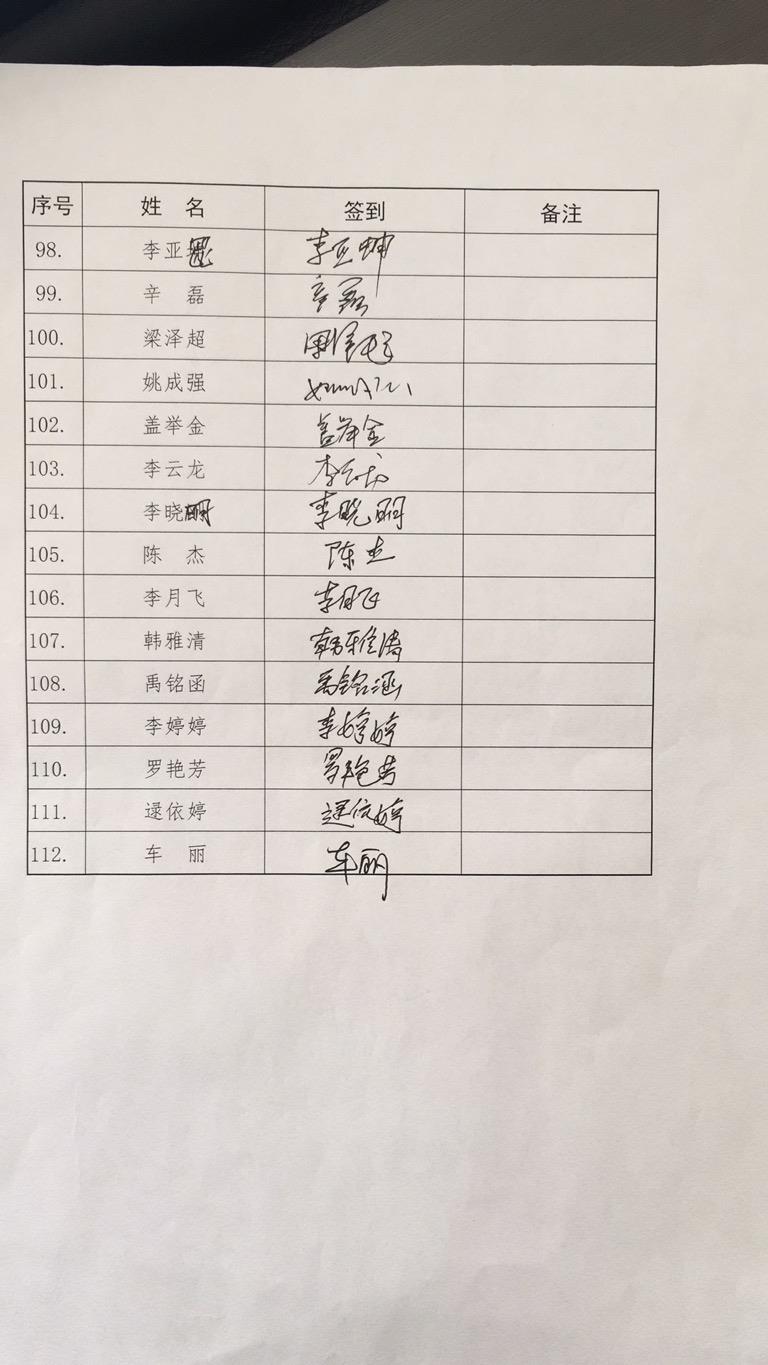 序号 姓 名 签到 备注
98. 李亚 李亚坤
99. 辛 磊 辛磊
100. 梁泽超
101. 姚成强
102. 盖举金 盖举金
103. 李云龙 李云龙
104. 李晓 李晓丽
105. 陈 杰 陈杰
106. 李月飞 李月飞
107. 韩雅清 韩雅清
108. 禹铭函 禹铭涵
109. 李婷婷 李婷婷
110. 罗艳芳 罗艳芳
111. 逯依婷 逯依婷
112. 车 丽 车丽